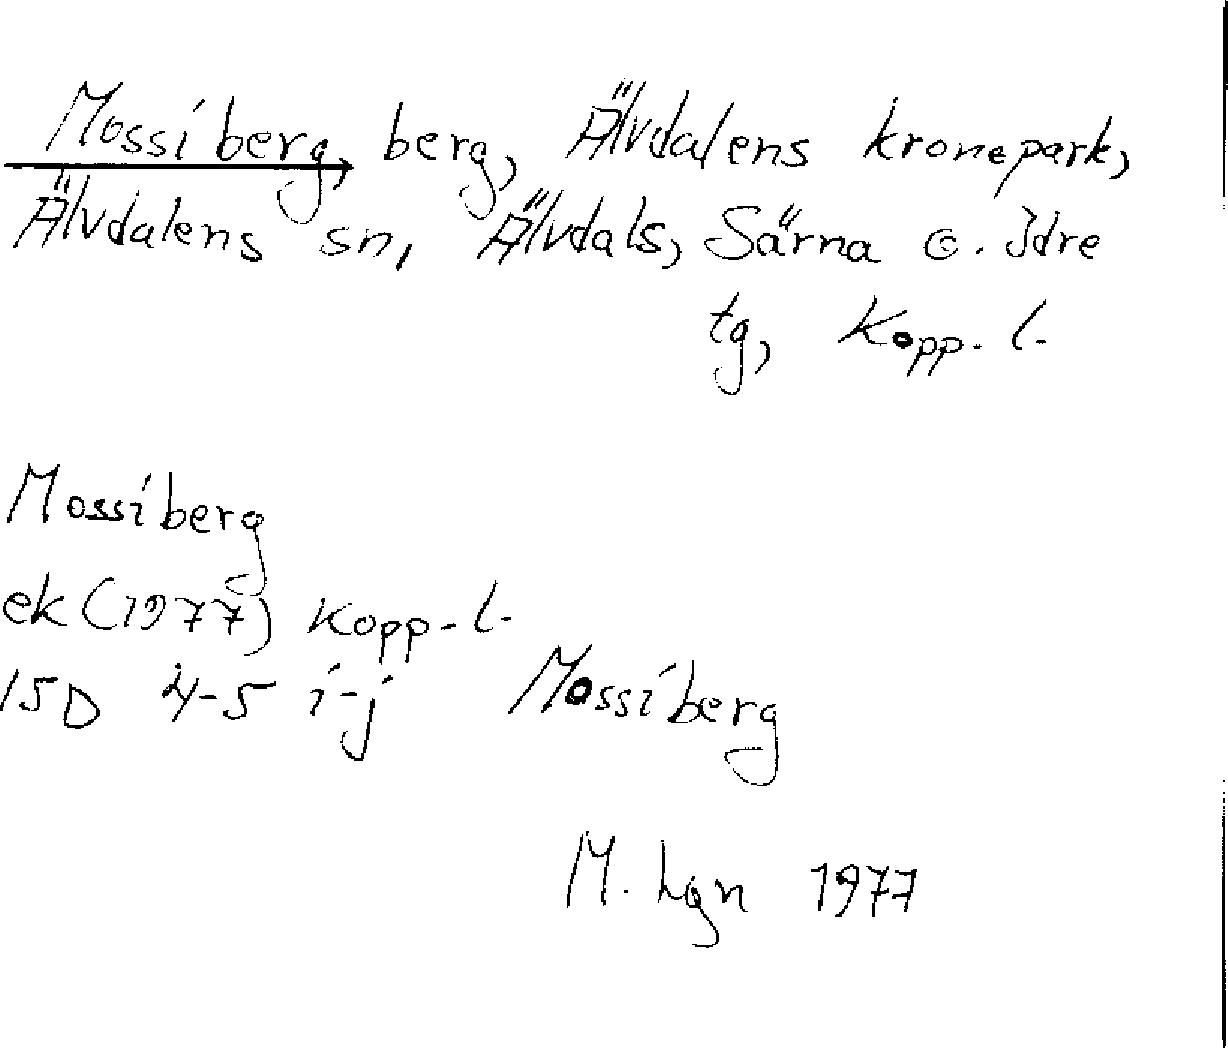 Mossiberg, berg, Älvdalens kronopark,
Älvdalens sn, Älvdals, Särna o. Idre
tg, Kopp. l.
Mossiberg
ek (1977) Kopp. l.
15D 4-5 i-j Mossiberg
M. Lgn 1977